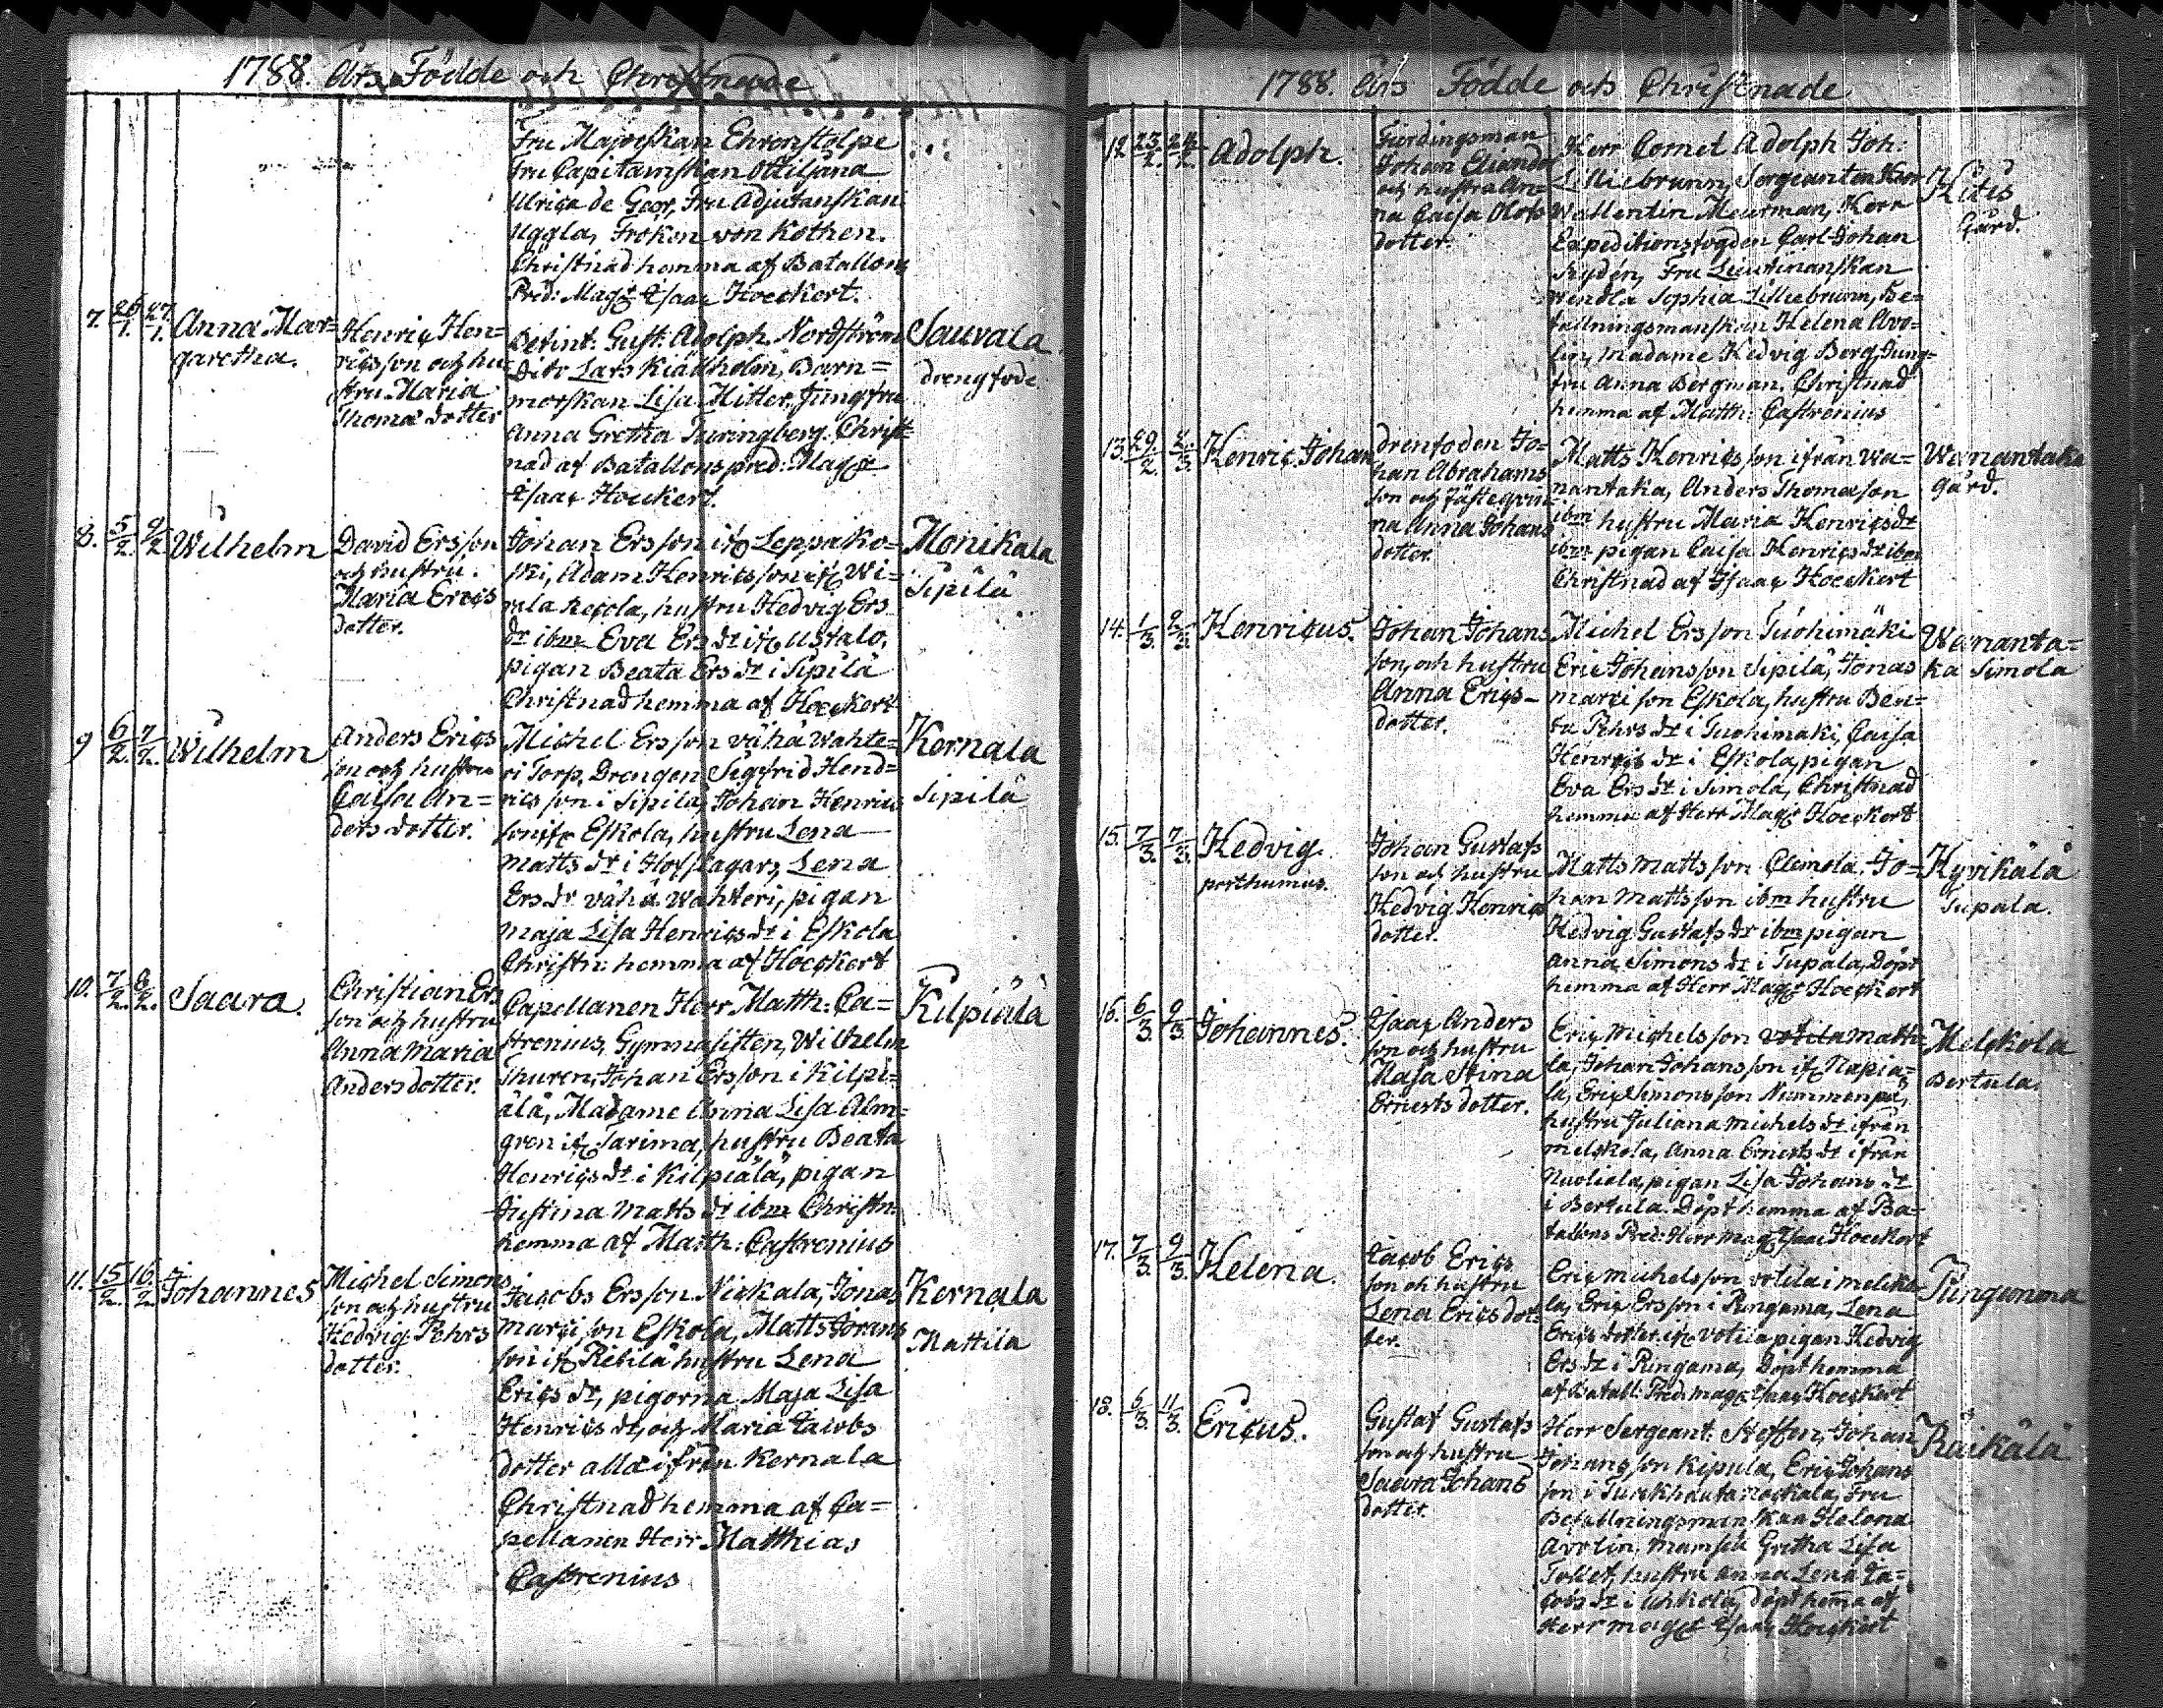 1788. Års Födde och Christnade
Fru Majorskan Ehrenstolpe
Fru Capitainskan Ottiliana
Ulrica de Geer, Fru Adjutanskan
Uggla, Fröken von Kothen.
Christnad hemma af Batallons
Pred: Mag: Isaac Hoeckert.
7. 26/1. 27/1. Anna Mar=
garetha.
Henric Hen=
ricsson och hu=
stru Maria
Thomæ dotter
Gust: Adolph Nordström
Dito Lars Kiällholm, Barn=
morskan Lisa Hitter, Jungfru
Anna Gretha Turingberg. Christ=
nad af Batallons pred: Mag:
Isaac Hoeckert.
Sauvala
8. 5/2. 9/2 Wilhelm
David Ersson
och hustru
Maria Erics
dotter.
Johan Ersson ifr Leppäko=
ski, Adam Henricsson ifr Wi=
rala Recola, hustru Hedvig Ers
dr ibm Eva Ers dr ifr Ustalo,
pigan Beata Ers dr i Sipilä
Christnad hemma af Hoeckert
Monikala
Sipilä
9 6/2. 7/2. Wilhelm
Anders Erics
son och hustru
Caisa An=
ders dotter.
Michel Ersson vähä Wahte=
ri Torp. Drengen Sigfrid Hend=
rics son i Sipilä, Johan Henrics
son ifr Eskola, hustru Lena
Matts dr i Hofslagars, Lena
Ers dr vähä Wahteri, pigan
Maja Lisa Henrics dr i Eskola
Christn: hemma af Hoeckert
Kernala
Sipilä
10. 7/2. 8/2. Saara.
Christian Ers
son och hustru
Anna Maria
Anders dotter.
Capellanen Herr Matth: Ca=
strenius, Gymnasisten, Wilhelm
Thuren, Johan Ersson i Kilpi=
älä, Madame Anna Lisa Alm=
gren ifr Tarima, hustru Beata
Henrics dr i Kilpiälä, pigan
Justina Matts dr ibm Christn:
hemma af Matth: Castrenius
Kilpiälä
11. 15/2. 16/2 Johannes
Michel Simons
son och hustru
Hedvig Pehrs
dotter.
Jacobs Ersson Nickala, Jonas
Marci son Eskola, Matts Görans
son ifr Rebilä hustru Lena
Erics dr, pigorna Maja Lisa
Henrics dr, och Maria Jacobs
dotter alla ifrån Kernala
Christnad hemma af Ca=
pellanen Herr Matthias
Castrenius
Kernala
Mattila
1788. Års Födde och Christnade
12 23/2. 24/2. Adolph.
Fierdingsman
Johan
och hustru An=
na Caisa Olofs
dotter.
Herr Cornet Adolph Joh:
Lilliebrunn, Sergeanten Herr
Wallentin Meurman, Herr
Expeditionsfogden Carl Johan
Rydén, Fru Lieutinanskan
Wendla Sophia Lilliebrunn, Be=
fallningsmanskan Helena Avo=
lin, Madame Hedvig Berg, Jung=
fru Anna Bergman. Christnad
hemma af Matth: Castrenius
Gård.
13. 29/2. 2/3. Henric Johan
drenfoden Jo=
han Abrahams
son och Fästeqvin
na Anna Johans
dotter.
Matts Henricsson ifrån Wa=
nantaka, Anders Thomason
ibm hustru Maria Henricsdr
ibm pigan Caisa Henrics dr ibm
Christnad af Isaac Hoeckert
Wanantaka
gård.
14. 1/3. 2/3. Henricus.
Johan Johans
son, och hustru
Anna Erics-
dotter.
Michel Ersson Tuohimäki
Eric Johansson Sipilä, Jonas
Marci son Eskola, hustru Ben=
ta Pehrs dr i Tuohimäki, Caisa
Henrics dr i Eskola, pigan
Eva Ers dr i Simola, Christnad
hemma af Herr Mag: Hoeckert
Wananta=
ka Simola
15. 7/3. 7/3. Hedvig.
posthumus.
Johan Gustafs
son och hustru
Hedvig Henrics
dotter.
Matts Matts son Clemola. Jo=
han Mattsson ibm hustru
Hedvig Gustafs dr ibm pigan
Anna Simons dr i Tupala, Döpt
hemma af Herr Mag: Hoeckert
Hyvikälä
Tupala.
16. 6/3 9/3. Johannes.
Isaac Anders
son och hustru
Maja Stina
Ernests dotter.
Eric Michelsson votila Matti=
la, Johan Johansson ifr Napia=
la, Eric Simonsson Nummenpä,
hustru Juliana Michels dr ifrån
Melskola, Anna Ernests dr ifrån
Nuoliala, pigan Lisa Johans dr
i Bertula. Döpt hemma af Ba=
tallons Pred: Herr Mag: Isaac Hoeckert
Melskola
Bertula.
17. 7/3. 9/3. Helena.
Jacob Erics
son och hustru
Lena Erics dot=
ter.
Eric Michelsson votila i melsko=
la, Eric Ersson i Ringama, Lena
Erics dotter ifr votila pigan Hedvig
Ers dr i Ringama, Döpt hemma
af Batall: Pred: Mag: Isaac Hoeckert
Ringamma
18. 6/3. 11/3. Ericus.
Gustaf Gustafs
son och hustru
Saara Johans
dotter.
Herr Sergeant: Steffen, Johan
Johansson Kipula, Eric Johans
son i Turckhauta, Fru
Befallningsmanskan Helena
Avolin, Mamsell Gretha Lisa
Tollet, hustru Anna Lena Ja=
cobs dr i Uhkola, döpt hema af
Herr Mag: Isaac Hoeckert
Räikälä